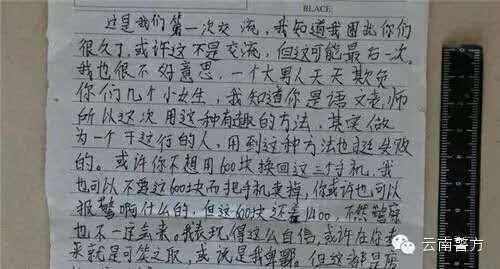 BLACE:
这是我们第一次交流，我知道我困出你们
很久了，或许这不是交流，但这可能最后一次。
我也很不好意思，一个大男人天天欺负
你们几个小女生，我知道你是语文老师
所以这次用这种有趣的方法，其实做
为一个干这行的人，用到这种方法也挺失败
的。或许你不想用600块换回这三个手机，我
也可以不要这600块而把手机卖掉，你或许也可以
报警啊什么的，但这600块还是1400，不然警察
也不一定会来。我表现得这么自信，或许在你看
来就是可笑之取，或说是我卑鄙。但这
云南警方